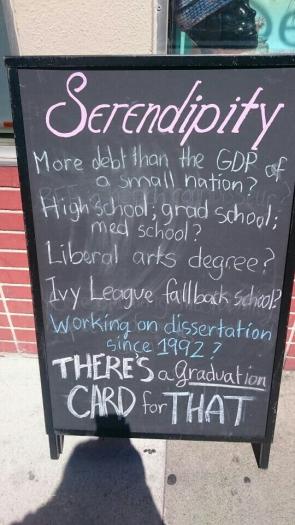 Serendipity
More debt than the GDP of
a small nation?
High school; grad school;
med school?
Liberal arts degree?
Ivy League fallback school?
Working on dissertation
since 1992?
THERE'S a graduation
CARD for THAT